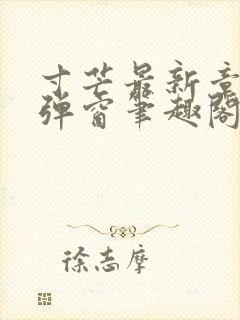 寸芒最新章
弹窗笔趣阁
徐志摩